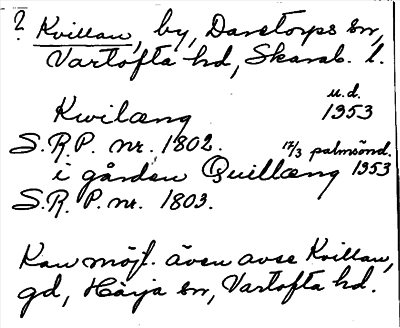 ? Kvillan, by, Daretorps sn,
Vartofta hd, Skarab. l.
u.d.
Kwilæng 1353
S.R.P. nr. 1802. 17/3 palmsönd.
i gården Quillæng 1353
S.R.P. nr. 1803.
Kan möjl. även avse Kvillan,
gd, Härja sn, Vartofta hd.